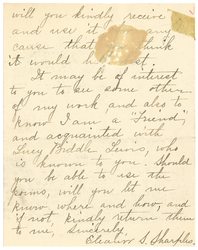 will you kindly receive
and use it any
cause that think
it would st.
It may be of interest
to you to see some other
of my work and also to
know I am a "Friend",
and acquainted with
Lucy Biddle Lewis, who
is known to you. Should
you be able to use the
poems, will you let me
know where and how, and
if not kindly return them
to me, Sincerely,
Eleanor S. Sharples.